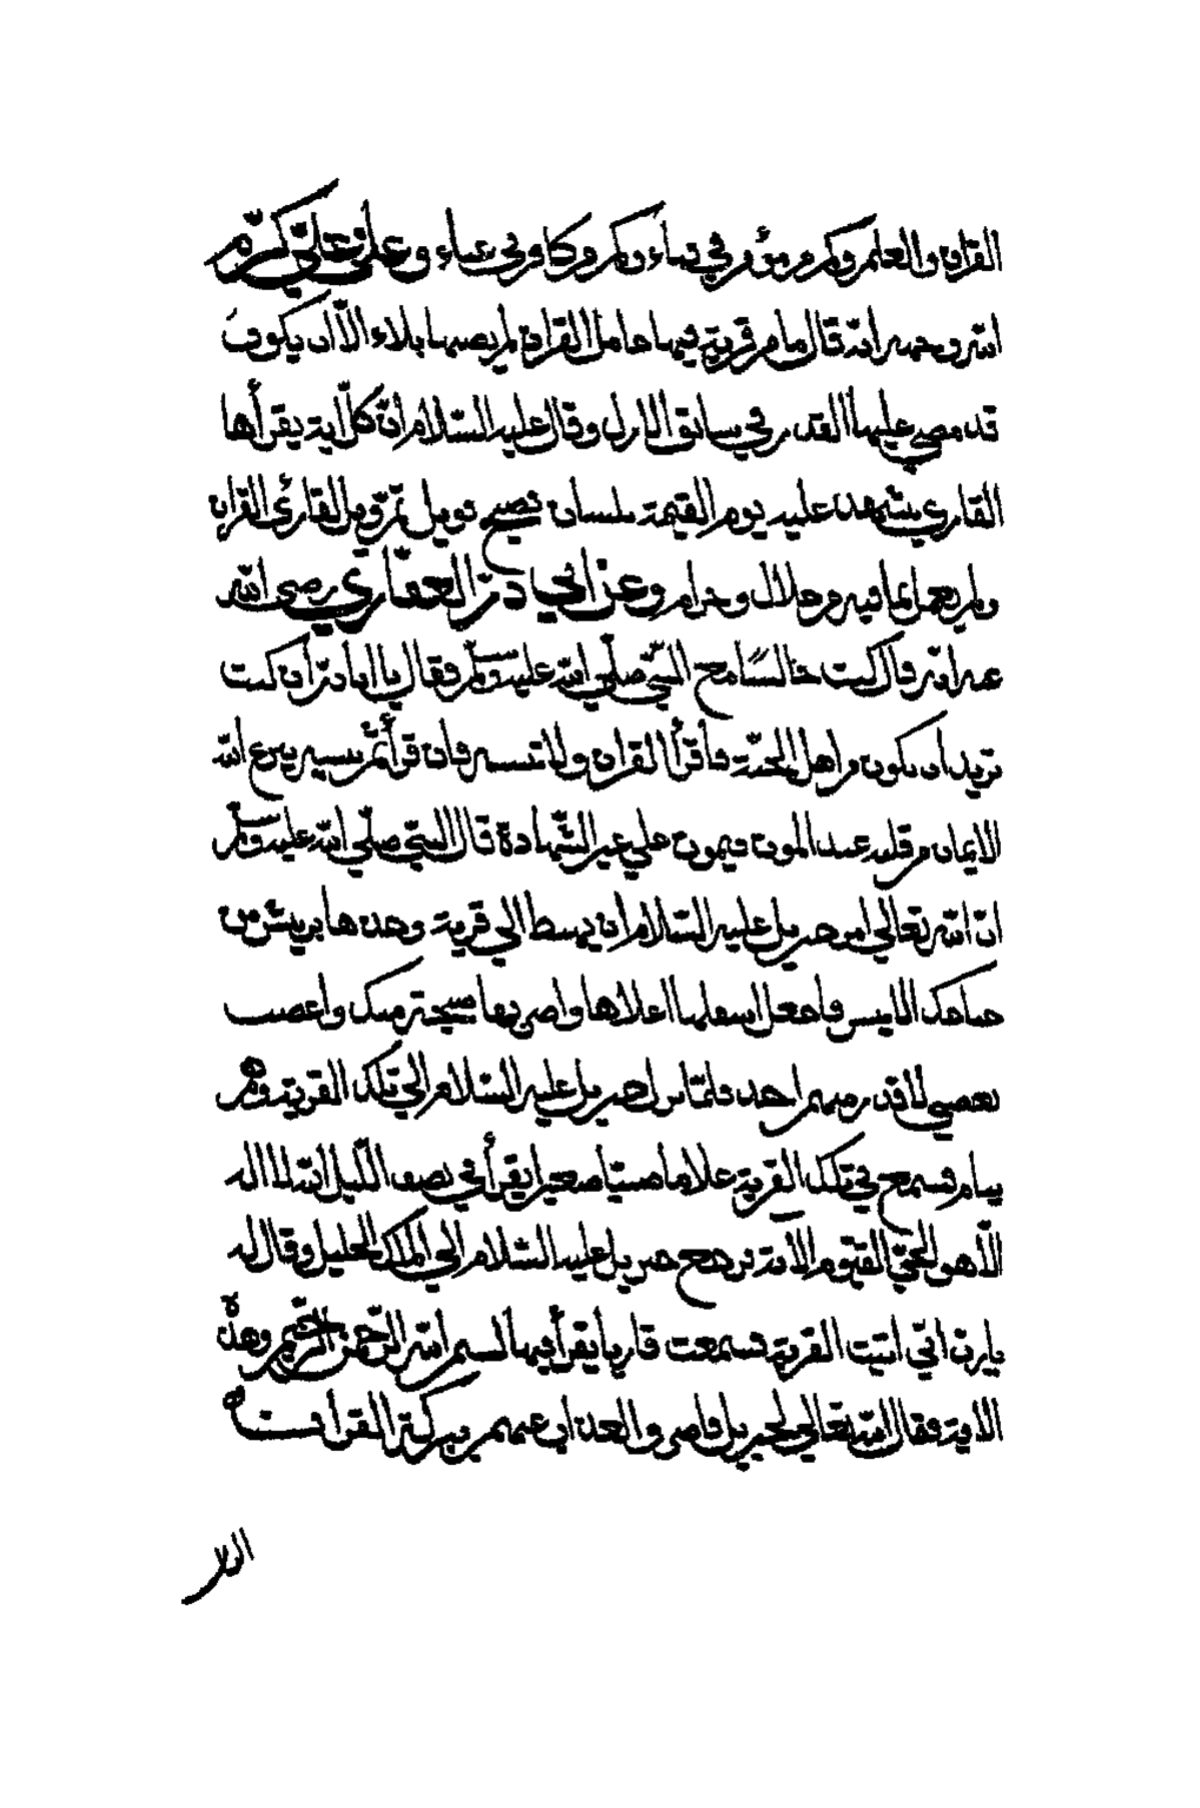 القران والعلم وكم من مؤمن في نساء وكم من كافر في عباء وعلى علي كرم
الله وجهه انه قال ما من قرية فيها حامل القران لم يصبها بلاء الا ان يكون
قد مضى عليها القدر في سابق الازل وقال عليه السلام ان كل اية يقرأها
القاري يشهدن عليه يوم القيمة بلسان فصيح تويل ثم ويل القارئ القران
ولم يعمل بما فيه من حلال وحرام وعن ابي ذر الغفاري رضى الله
عنه انه قال كنت جالسا مع النبي صلى الله عليه وسلم فقال يا ابا ذر ان كنت
تريد ان يكون من اهل الجنة فاقرأ القران ولا تنسه فان قرأ ثم نسيه ينزع الله
الايمان من قلبه عند الموت فيموت على غير الشهادة قال النبي صلى الله عليه وسلم
ان الله تعالى امر جبريل عليه السلام ان يهبط الى قرية وحدها بريش من
جناحك الايسر فاجعل اسفلها اعلاها واضربها صيحة منك واغضب
بغضبي لا قدر منهم احد فلما نزل جبريل عليه السلام الى تلك القرية وهم
نيام فسمع في تلك القرية غلاما صبيا صغيرا يقرأ في نصف الليل الله لا اله
الا هو الحي القيوم الاية فرجع جبريل عليه السلام الى الملك الجليل وقال له
يا رب اني اتيت القرية فسمعت قاريا يقرأ فيها بسم الله الرحمن الرحيم وهذه
الاية فقال الله تعالى لجبريل فاصرف العذاب عنهم ببركة القرا فسده